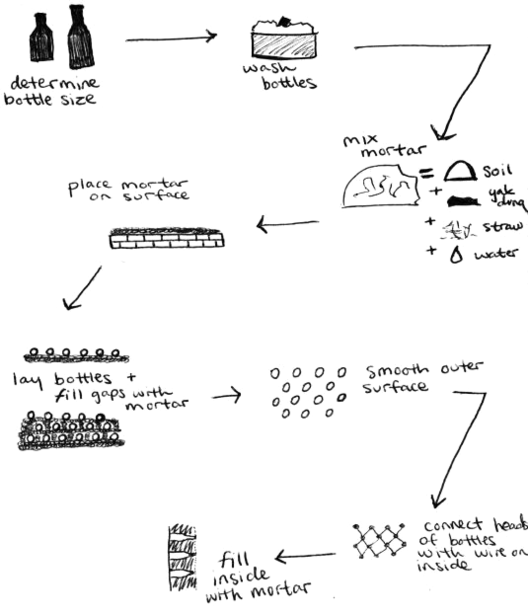 determine
bottle size
wash
bottles
mix
mortar
= soil
+ yak
dung
+ straw
+ water
place mortar
on surface
lay bottles +
fill gaps with
mortar
smooth outer
surface
connect heads
of bottles
with wire on
inside
fill
inside
with mortar